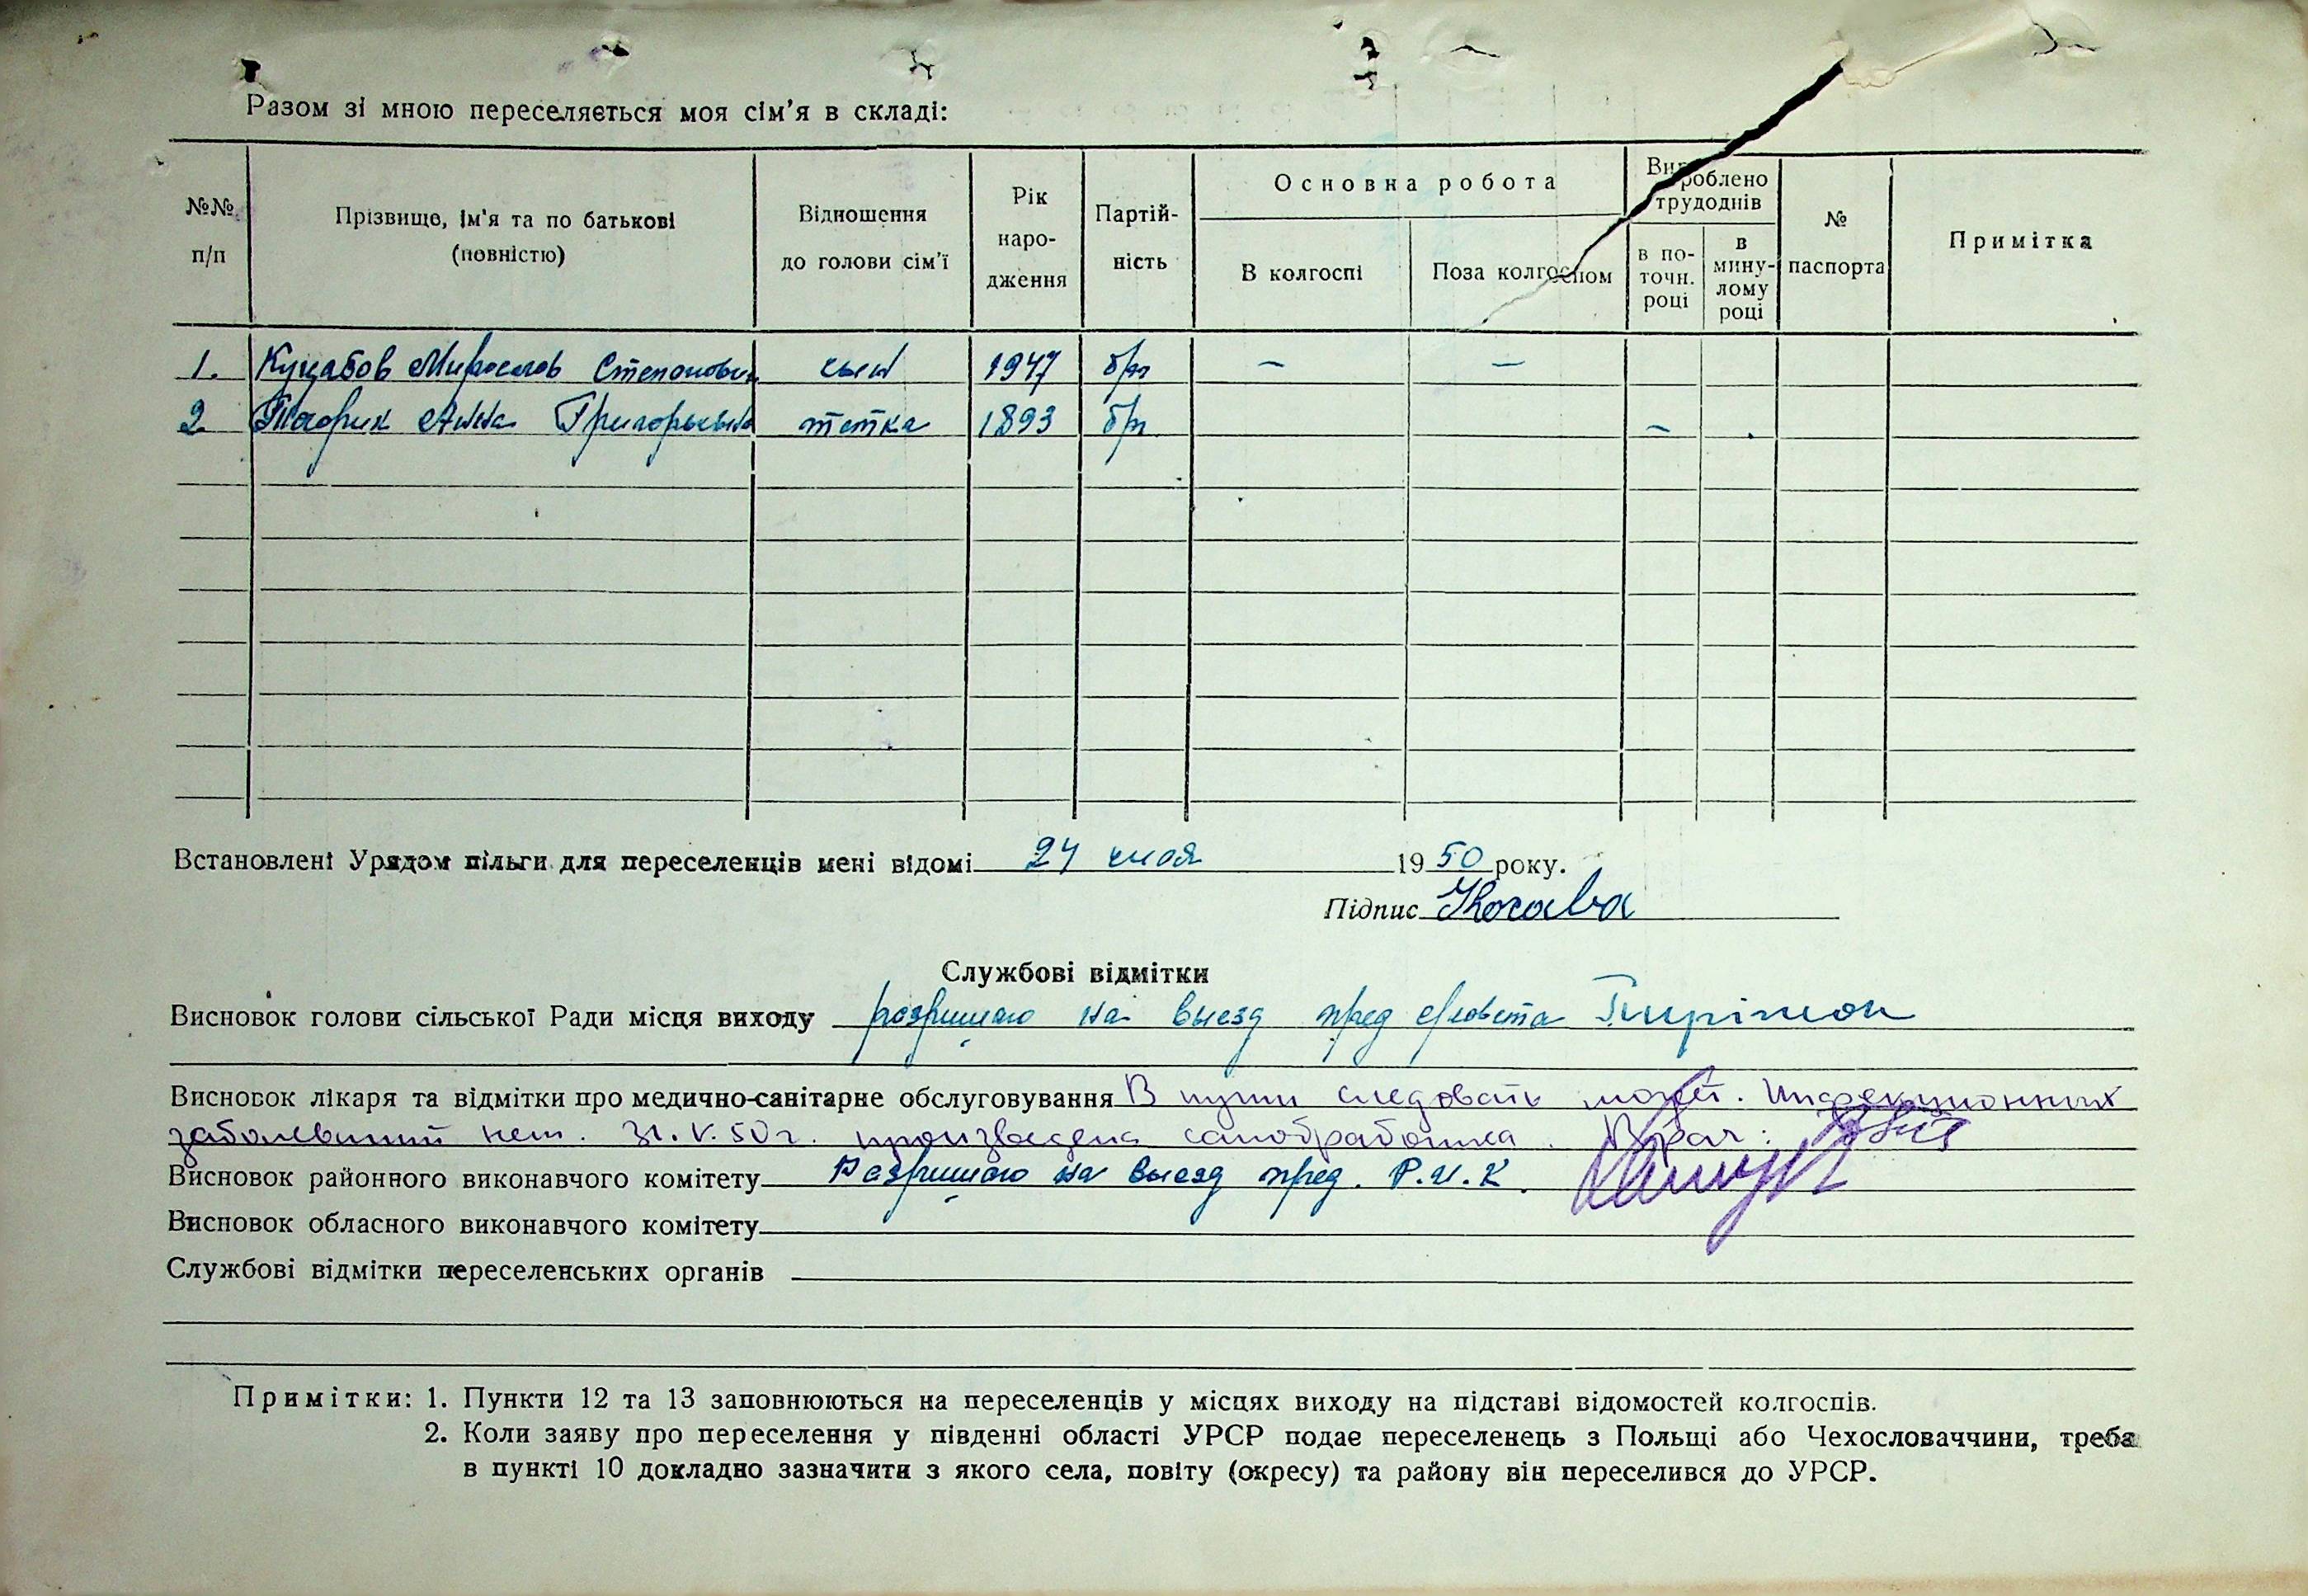 Разом зі мною переселяється моя сім'я в складі:
№№ п/п
Прізвище, ім'я та по батькові (повністю)
Відношення до голови сім'ї
Рік народження
Партійність
Основна робота
В колгоспі
Поза колгоспом
Вироблено трудоднів
в поточн. році
в минулому році
№ паспорта
Примітка
1. Куцабов Мирослав Степанович сын 1947 б/п – –
2 Анна Григорьевна тетка 1893 б/п –
Встановлені Урядом пільги для переселенців мені відомі 24 мая 1950 року.
Підпис
Службові відмітки
Висновок голови сільської Ради місця виходу разришаю на выезд пред с/совета
Висновок лікаря та відмітки про медично-санітарне обслуговування В пути следовать может. Инфекционных
заболеваний нет. 31.V.50 г. произведена санобработка. Врач:
Висновок районного виконавчого комітету Разришаю на выезд пред. Р.И.К.
Висновок обласного виконавчого комітету
Службові відмітки переселенських органів
Примітки: 1. Пункти 12 та 13 заповнюються на переселенців у місцях виходу на підставі відомостей колгоспів.
2. Коли заяву про переселення у південні області УРСР подає переселенець з Польщі або Чехословаччини, треба
в пункті 10 докладно зазначити з якого села, повіту (окресу) та району він переселився до УРСР.